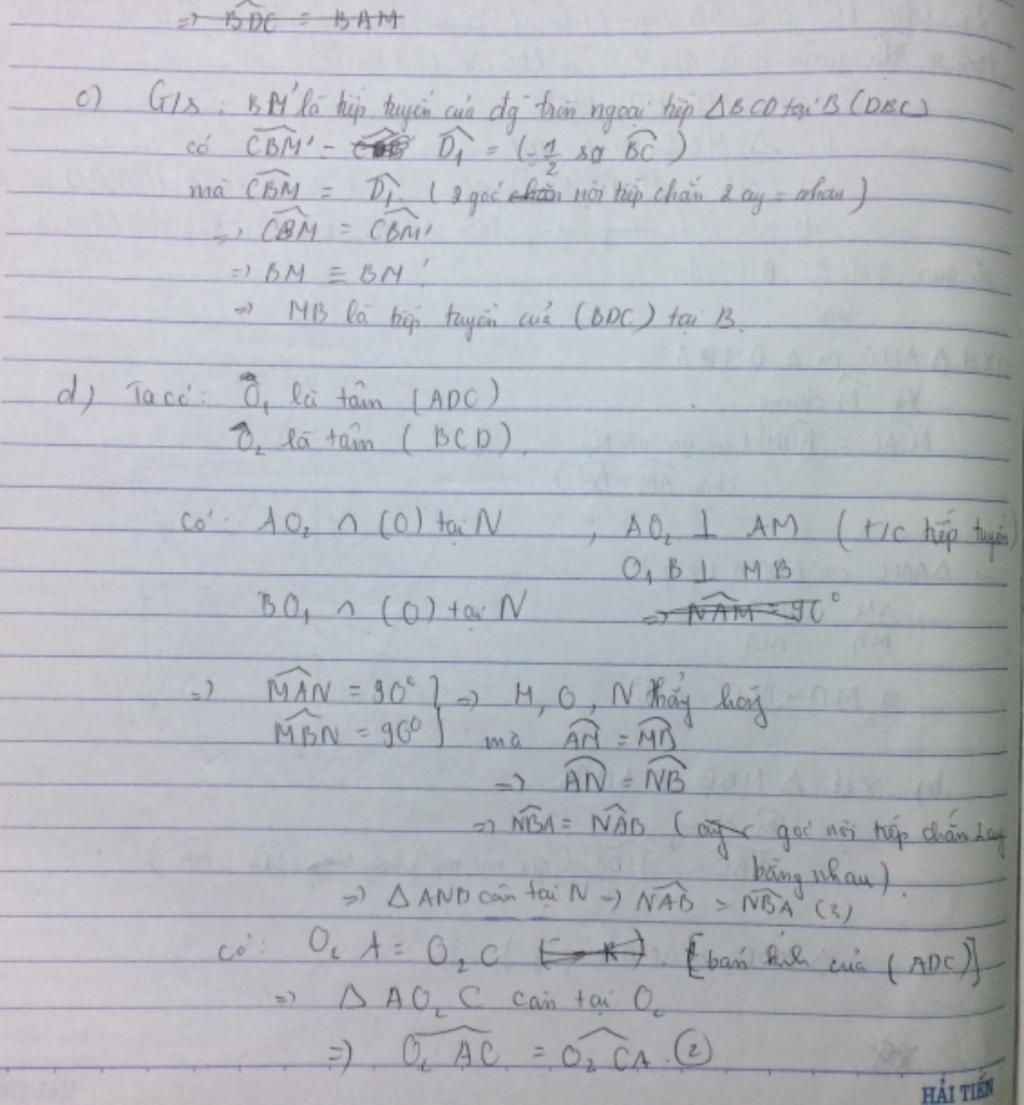 => BDC = BAM
c) G/s : BM' là tiếp tuyến của đg tròn ngoại tiếp ΔBCD tại B (DBC)
có CBM' = D₁ = (= 1/2 sđ BC)
mà CBM = D₁ ( 2 góc chắn nội tiếp chắn 2 = nhau )
=> CBM = CBM'
=> BM ≡ BM'
=> MB là tiếp tuyến của (BDC) tại B.
d) Ta có: O₁ là tâm (ADC)
O₂ là tâm ( BCD).
có: AO₂ ∩ (O) tại N ; AO₂ ⊥ AM ( t/c tiếp tuyến)
O₁B ⊥ MB
BO₁ ∩ (O) tại N => NAM = 90°
=> MAN = 90° } => M, O, N thẳng hàng
MBN = 90° mà AM = MB
=> AN = NB
=> NBA = NAB ( góc nội tiếp chắn 2
bằng nhau).
=> Δ AND cân tại N => NAB = NBA (3)
có: O₂ A = O₂ C [bán kính của (ADC)]
=> Δ AO₂ C cân tại O₂
=> O₂ AC = O₂ CA. (2)
HẢI TIẾN